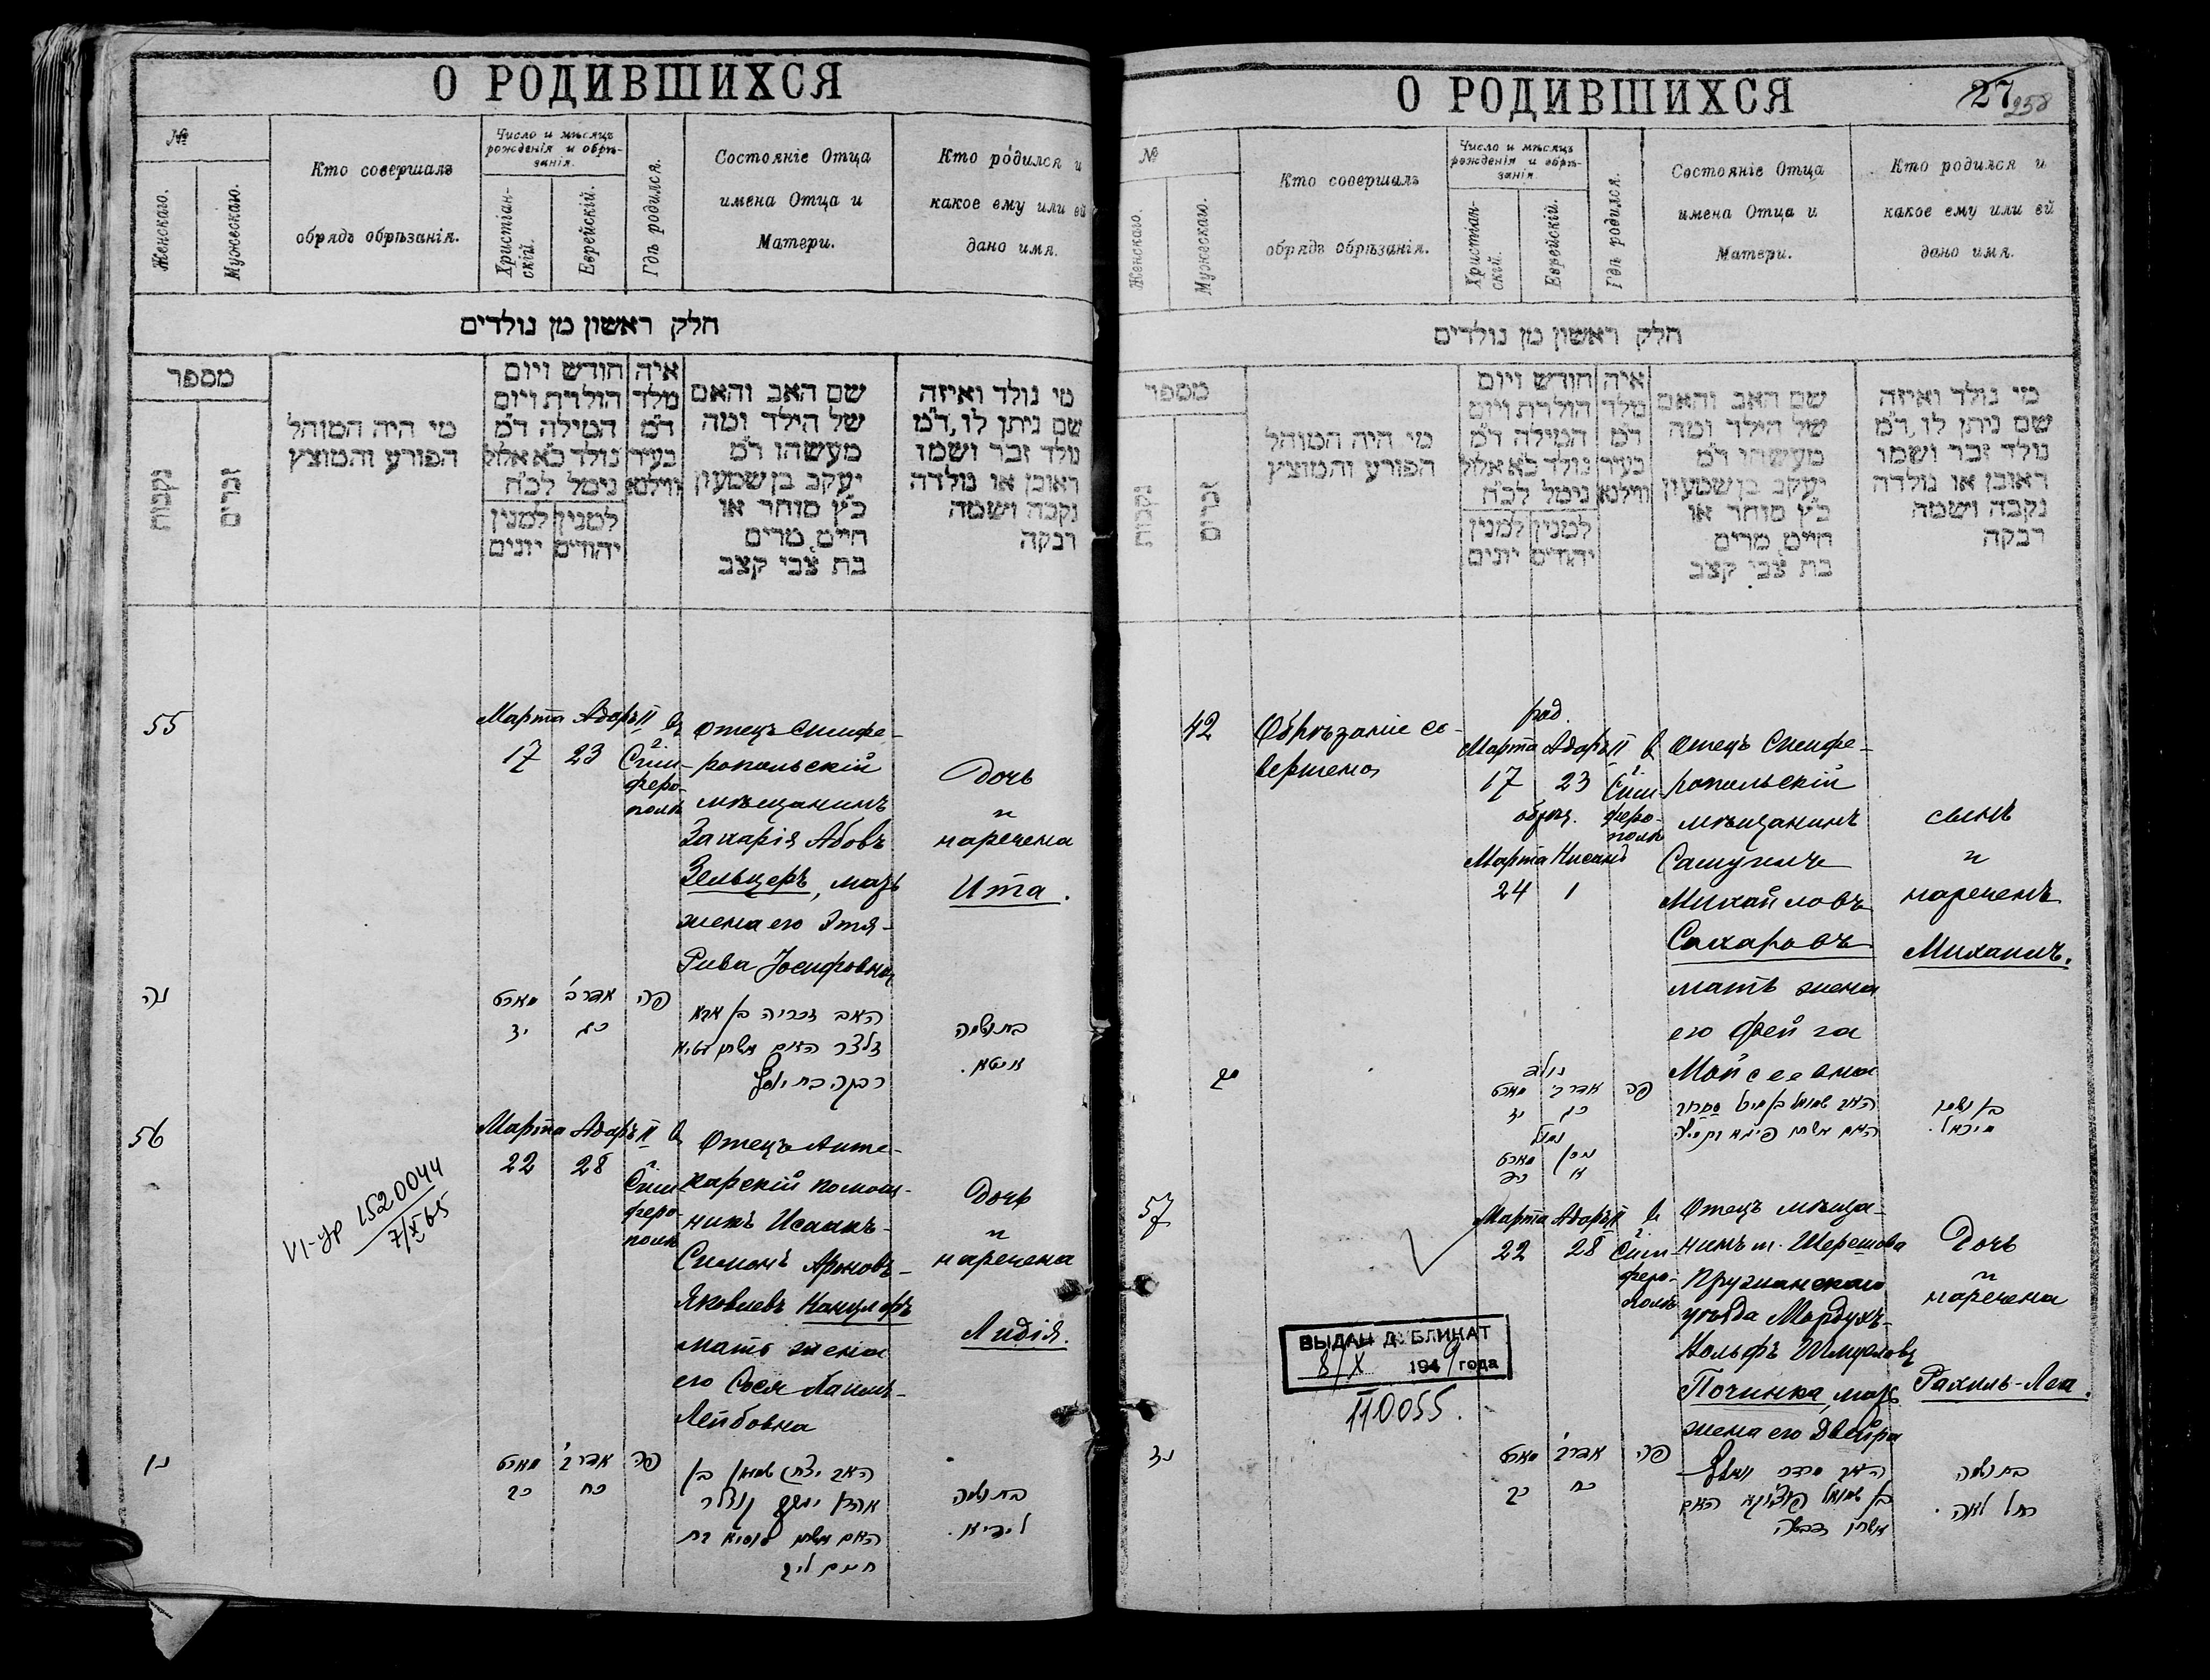 О РОДИВШИХСЯ
№
Женскаго.
Мужескаго.
Кто совершалъ
обрядъ обрѣзанія.
Число и мѣсяцъ
рожденія и обрѣ-
занія.
Христіан-
скій.
Еврейскій.
Гдѣ родился.
Состояніе Отца
имена Отца и
Матери.
Кто родился и
какое ему или ей
дано имя.
חלק ראשון מן נולדים
מספר
נקבות
זכרים
מי היה המוהל
הפורע והמוצץ
חודש ויום
הולדת ויום
המילה ד״מ
נולד כ״א אלול
נימל לכ״ח
למנין
יונים
למנין
יהודים
איה
מלד
ד״מ
בעיר
ווילנא
שם האב והאם
של הילד ומה
מעשהו ד״מ
יעקב בן שמעון
כ״ץ סוחר או
חייט מרים
בת צבי קצב
מי נולד ואיזה
שם ניתן לו, ד״מ
נולד זכר ושמו
ראובן או נולדה
נקבה ושמה
רבקה
55
Марта Адаръ II
17 23
въ
г.
Сим-
феро-
полѣ
Отецъ Симфе-
ропольскій
мѣщанинъ
Захарія Абовъ
Зельцеръ, мать
жена его Этя-
Рива Іосифовна
Дочь
и
наречена
Ита.
נה
מארט אדר ב׳ פה
יז כג
האב זכריה בן אבא
זלצר האם אשתו עטיא
רבקה בת יוסף
בת ושמה
איטא.
56
Марта Адаръ II
22 28
въ
г.
Сим-
феро-
полѣ
Отецъ Апте-
карскій помощ-
никъ Исаакъ-
Симонъ Ароновъ-
Яковлевъ Канцлеръ
мать жена
его Сося Хаимъ-
Лейбовна
Дочь
и
наречена
Лидія.
VI-ур 1520044
7/X 65
נו
מארט אדר ב׳ פה
כב כח
האב יצחק שמעון בן
האם אשתו סאסיא בת
חיים ליב
בת ושמה
לידיא.
О РОДИВШИХСЯ
27
258
№
Женскаго.
Мужескаго.
Кто совершалъ
обрядъ обрѣзанія.
Число и мѣсяцъ
рожденія и обрѣ-
занія.
Христіан-
скій.
Еврейскій.
Гдѣ родился.
Состояніе Отца
имена Отца и
Матери.
Кто родился и
какое ему или ей
дано имя.
חלק ראשון מן נולדים
מספר
נקבות
זכרים
מי היה המוהל
הפורע והמוצץ
חודש ויום
הולדת ויום
המילה ד״מ
נולד כ״א אלול
נימל לכ״ח
למנין
יונים
למנין
יהודים
איה
מלד
ד״מ
בעיר
ווילנא
שם האב והאם
של הילד ומה
מעשהו ד״מ
יעקב בן שמעון
כ״ץ סוחר או
חייט מרים
בת צבי קצב
מי נולד ואיזה
שם ניתן לו, ד״מ
נולד זכר ושמו
ראובן או נולדה
נקבה ושמה
רבקה
42
Обрѣзаніе со-
вершено
род.
Марта Адаръ II
17 23
обрѣз.
Марта Нисанъ
24 1
въ
г.
Сим-
феро-
полѣ
Отецъ Симфе-
ропольскій
мѣщанинъ
Самуилъ
Михайловъ
Сахаровъ
мать жена
его Фейга
Мойсеевна
сынъ
и
нареченъ
Михаилъ.
מב
נולד
מארט אדר ב׳ פה
יז כג
נמול
מארט ניסן
כד א
בן ושמו
מיכאל.
57
Марта Адаръ II
22 28
въ
г.
Сим-
феро-
полѣ
Отецъ мѣща-
нинъ м. Шерешова
Пружанскаго
уѣзда Мордухъ-
Вольфъ Шмуловъ
Починка, мать
жена его Двейра
Дочь
и
наречена
Рахиль-Леа.
ВЫДАН ДУБЛИКАТ
8/X 1949 года
110055.
נז
מארט אדר ב׳ פה
כב כח
האב מרדכי וואלף
בן שמואל פאצינקא האם
אשתו דבורה
בת ושמה
רחל לאה.